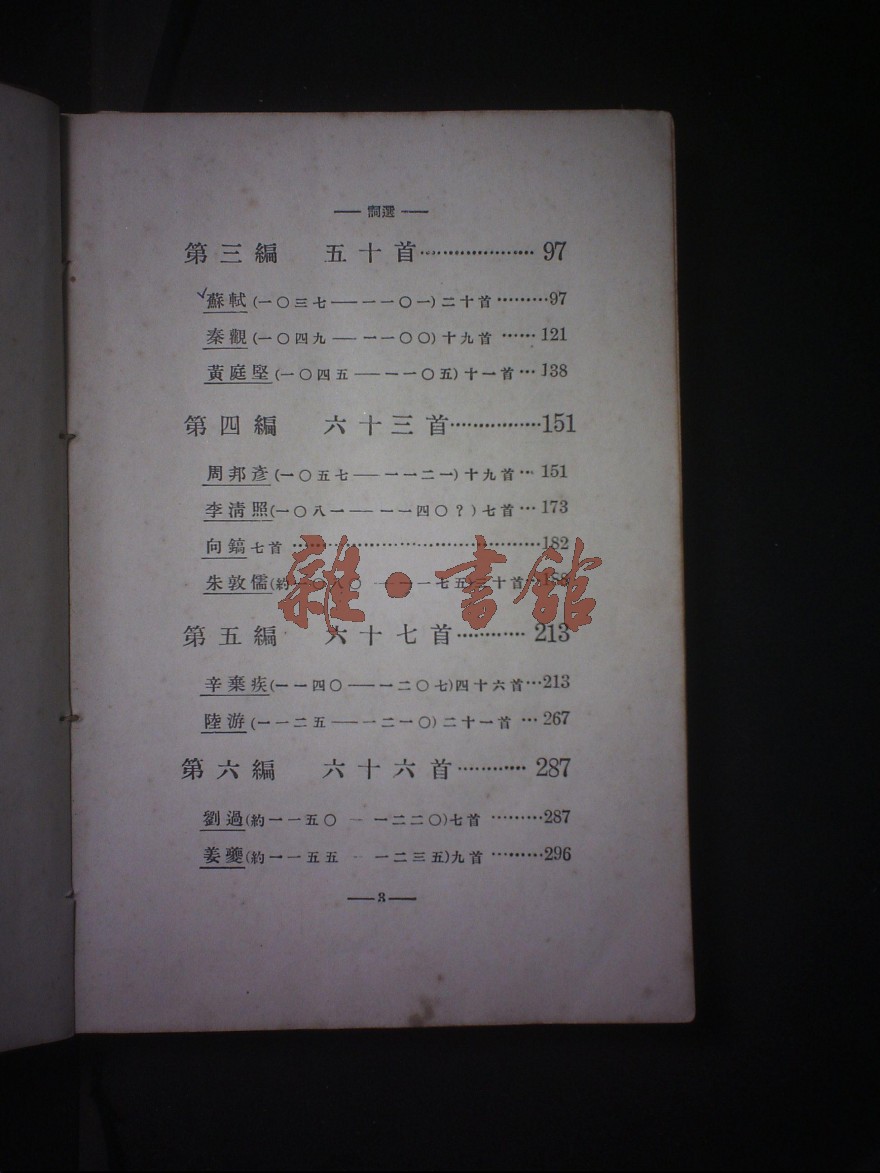 ── 詞選 ──
第三編 五十首⋯⋯⋯⋯⋯⋯97
蘇軾(一〇三七──一一〇一)二十首⋯⋯⋯97
秦觀(一〇四九──一一〇〇)十九首⋯⋯121
黃庭堅(一〇四五──一一〇五)十一首⋯138
第四編 六十三首⋯⋯⋯⋯⋯151
周邦彥(一〇五七──一一二一)十九首⋯151
李清照(一〇八一──一一四〇?)七首⋯173
向鎬七首⋯⋯⋯⋯⋯⋯⋯⋯⋯⋯⋯182
朱敦儒(約一〇八〇──一一七五)三十首⋯188
雜·書館
第五編 六十七首⋯⋯⋯⋯213
辛棄疾(一一四〇──一二〇七)四十六首⋯213
陸游(一一二五──一二一〇)二十一首⋯267
第六編 六十六首⋯⋯⋯⋯287
劉過(約一一五〇──一二二〇)七首⋯⋯⋯287
姜夔(約一一五五──一二三五)九首⋯⋯⋯296
──3──